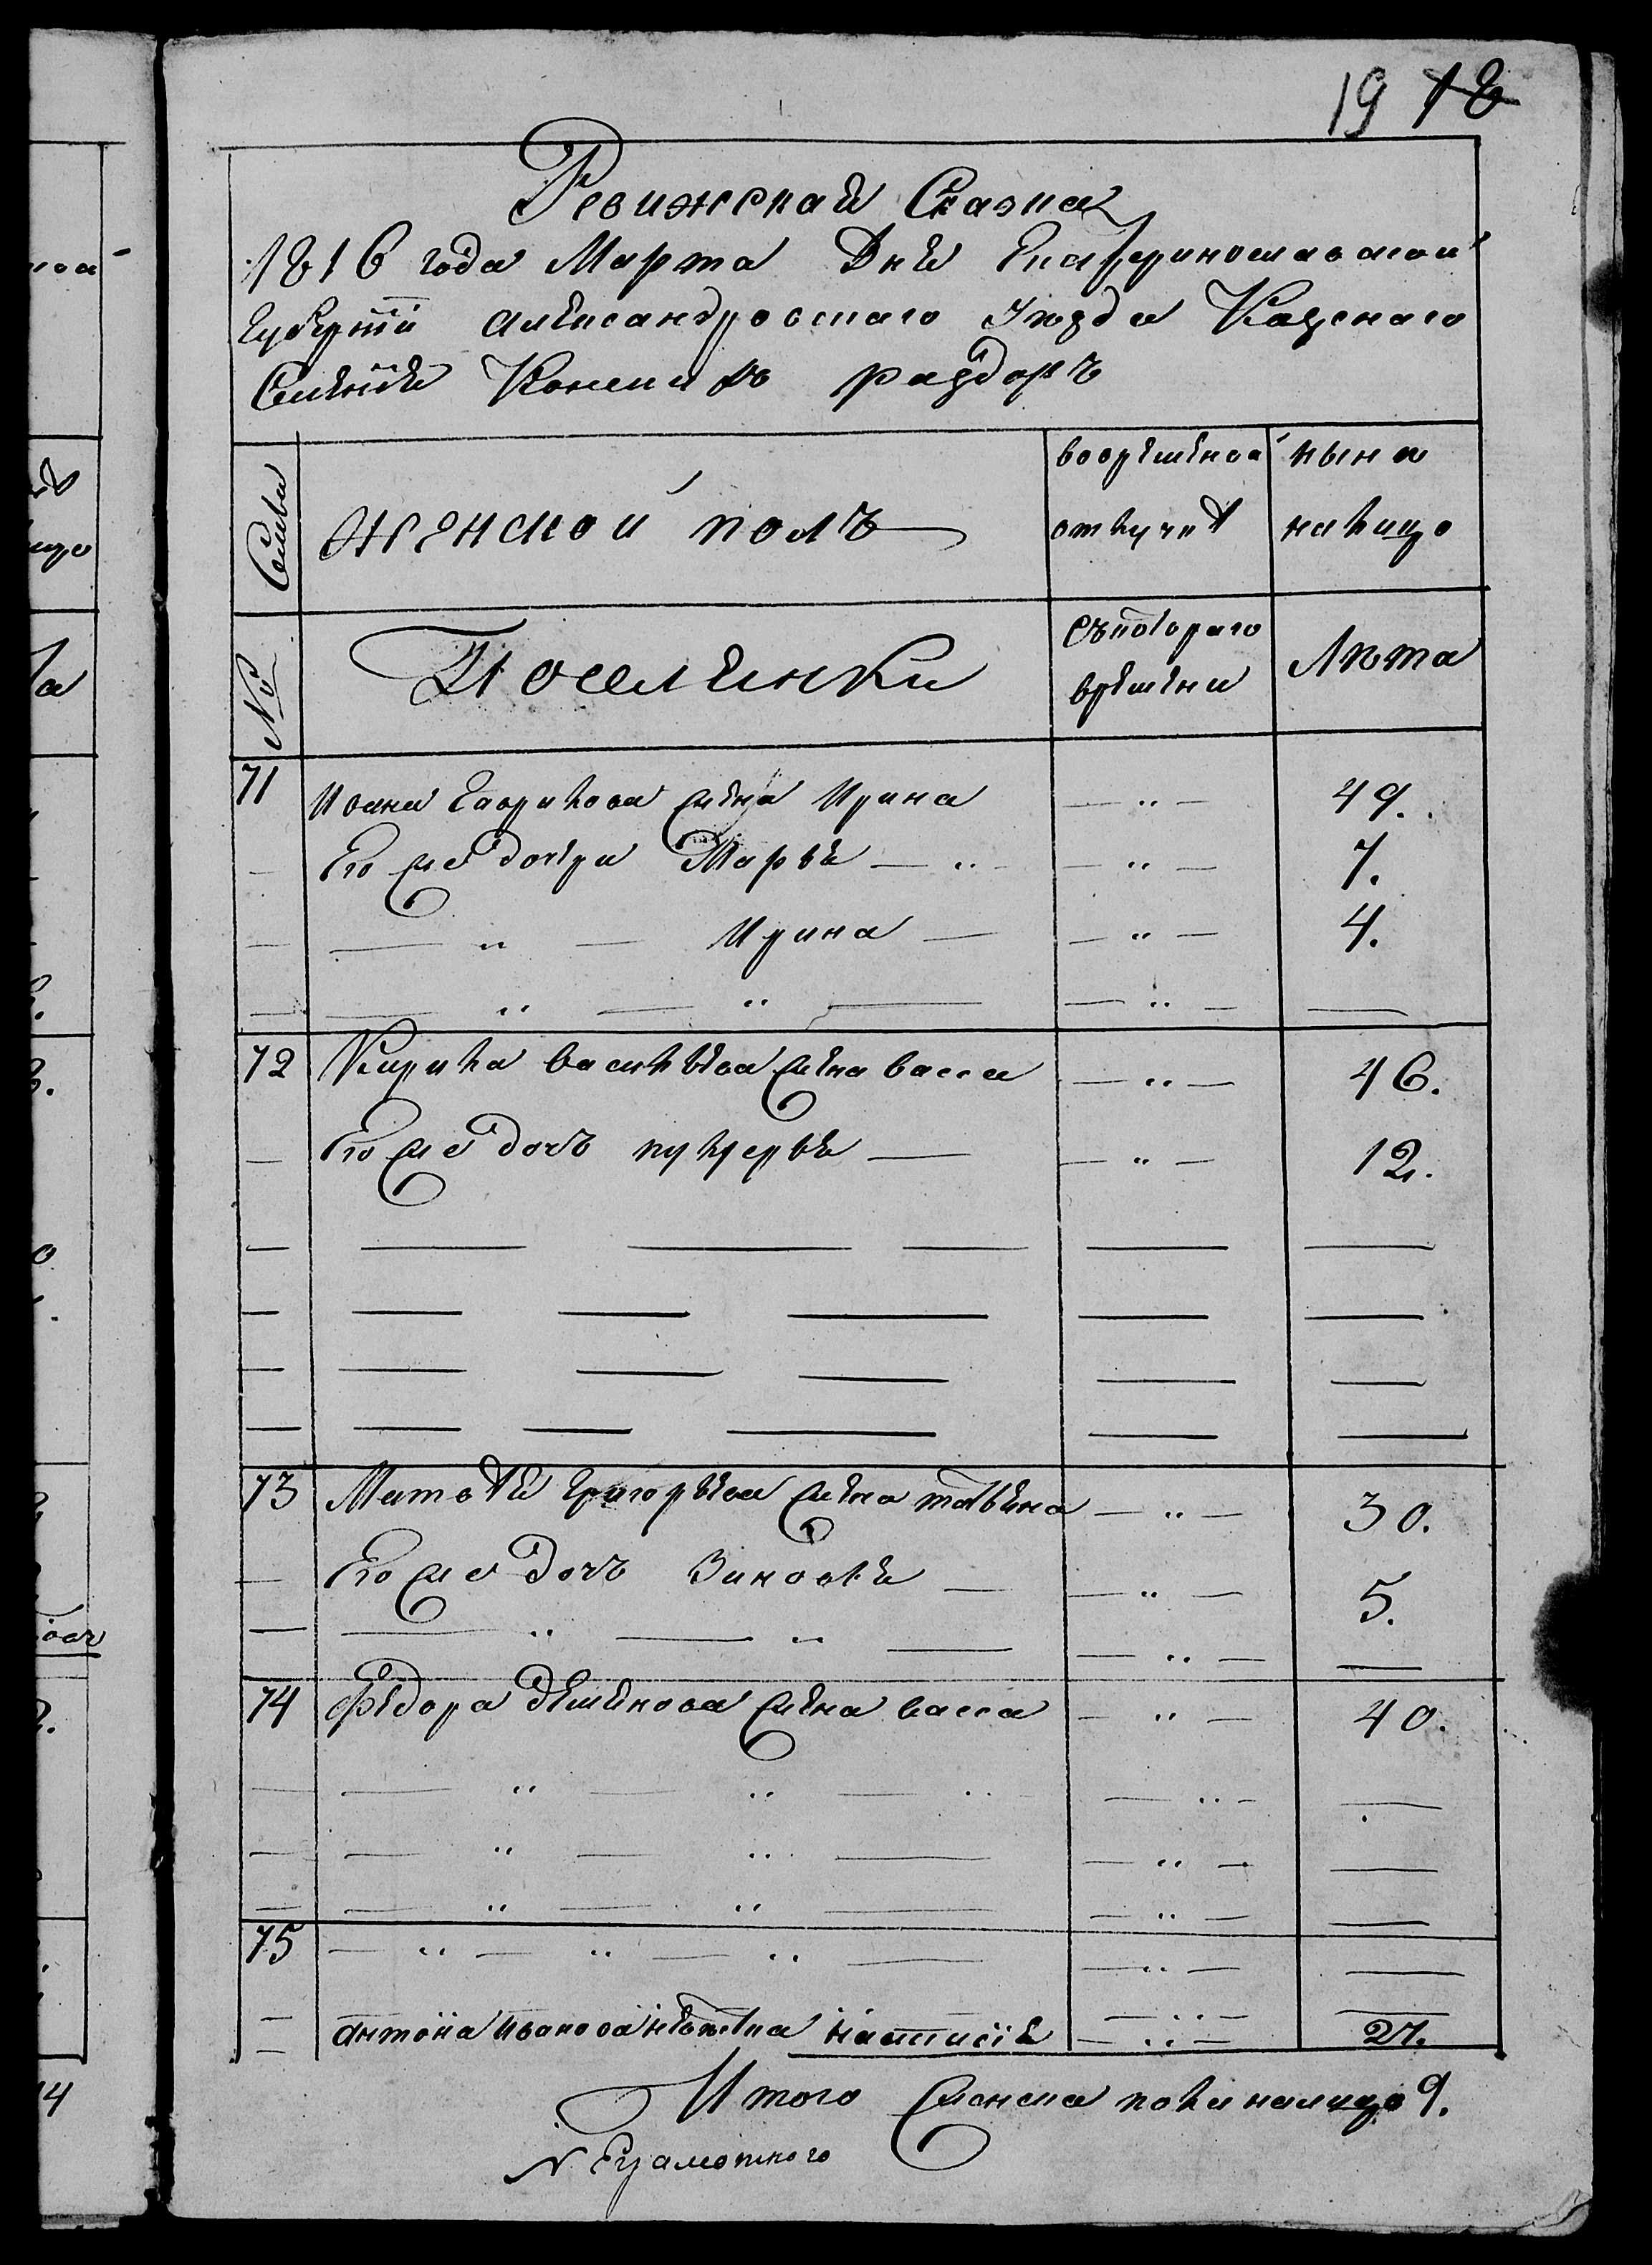 19 18
Ревижская Сказка
1816 года Марта Дня Екатеринославской
Губернiи Александровского Уезда Казенаго
Селенiя Конски хъ раздоръ
Семьи
женской полъ
вовремѣной
отлучке
ныне
налицо
№
Поселянки
съкоtораго
времени
Лѣта
71 Ивана Гаврилова жена Ирина — „ — 49.
— Его же дочери Марья — „ — „ — 7.
— — „ — Ирина — — „ — 4.
— — „ — „ — — „ — —
72 Кирила Васильева жена васса — „ — 46.
— Его же дочъ пулхерья — — „ — 12.
— — — — — —
— — — — — —
— — — — — —
— — — — — —
73 Матвѣя Григорьева жена татьяна — „ — 30.
— Его же дочъ Зиновья — — „ — 5.
— — „ — „ — — „ — —
74 Федора Семенова жена васса — „ — 40.
— — „ — „ — „ — „ — —
— — „ — „ — — „ — —
— — „ — „ — — „ — —
75 — „ — „ — „ — — „ — —
— — „ — —
— Антона Иванова невѣстка — „ — 27.
Итого женска пола налицо 9.